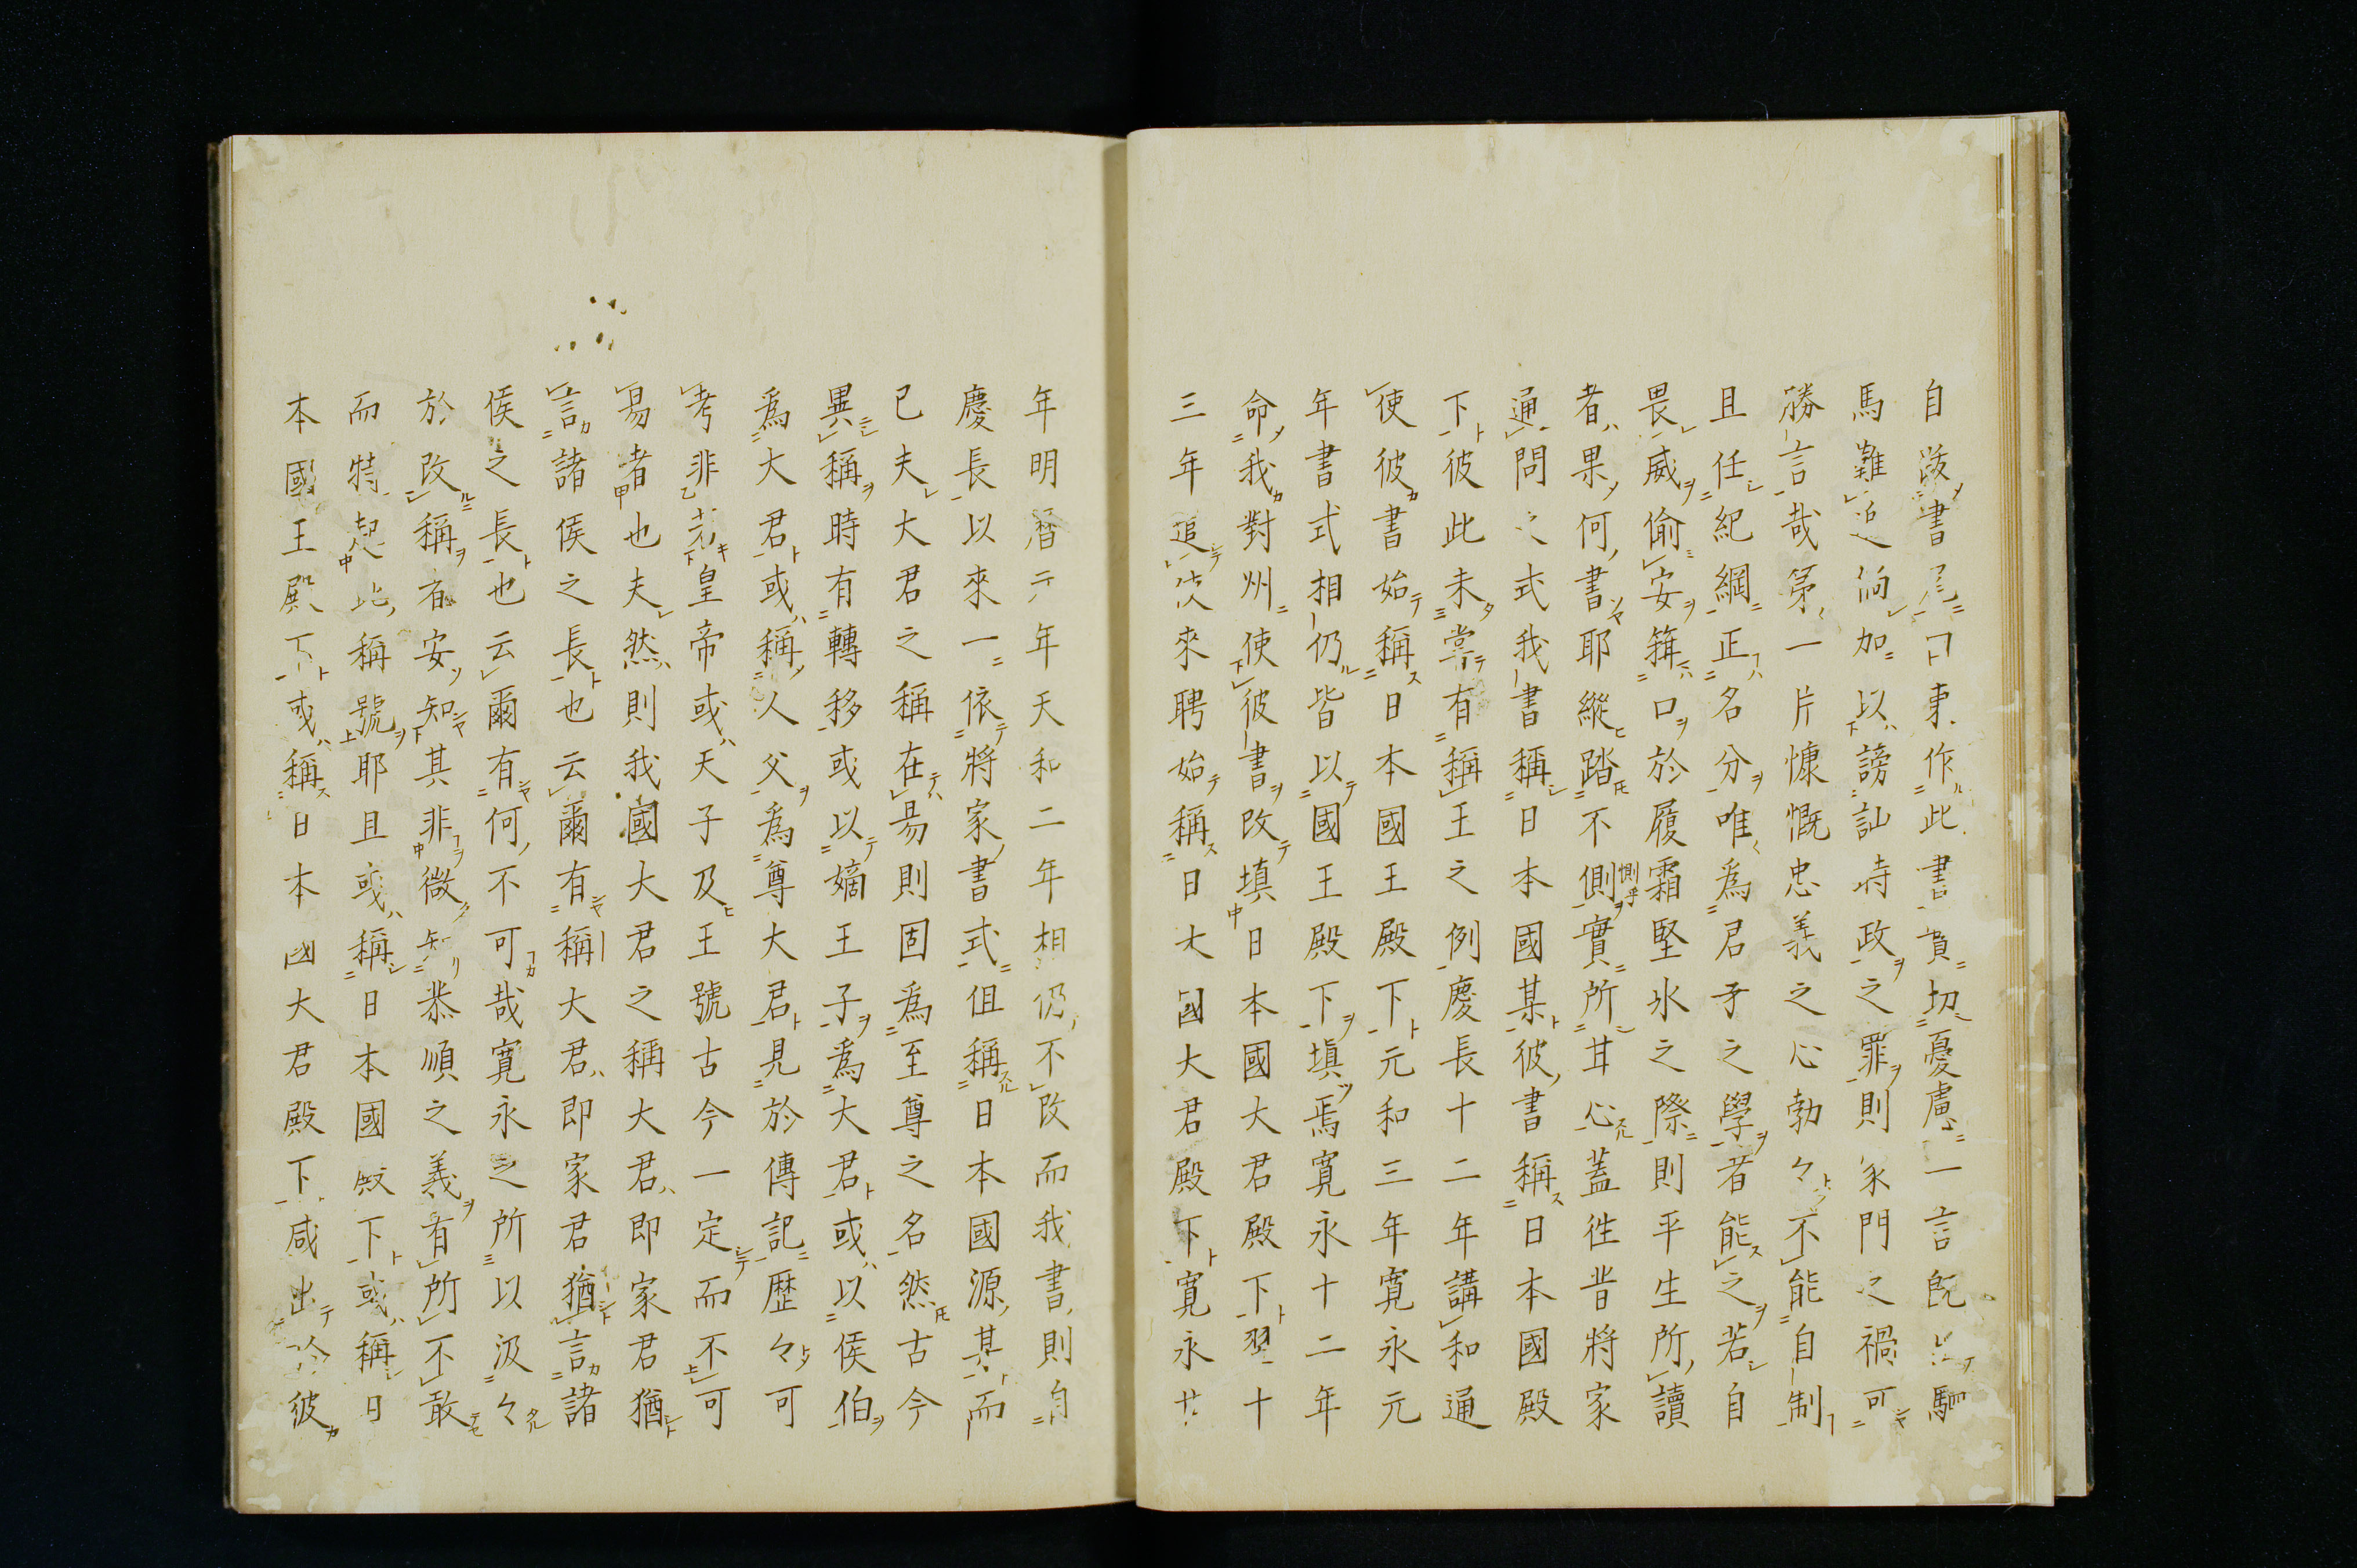 自跋書尾曰東作此書實切憂慮一言既出駟
馬難追倘加以謗訕時政之罪則家門之禍可
勝言哉第一片慷慨忠義之心勃々不能自制
且任紀綱正名分唯為君子之學者能之若自
畏威偷安箝口於履霜堅氷之際則平生所讀
者果何書耶縱踏不側實所甘心蓋徃昔將家
惻乎
通問之式我書稱日本國某彼書稱日本國殿
下彼此未嘗有稱王之例慶長十二年講和通
使彼書始稱日本國王殿下元和三年寛永元
年書式相仍皆以國王殿下填焉寛永十二年
命我對州使彼書改填日本國大君殿下翌十
三年追使來聘始稱日大國大君殿下寛永廿
年明曆元年天和二年相仍不改而我書則自
慶長以來一依將家書式但稱日本國源某而
已夫大君之稱在易則固為至尊之名然古今
異稱時有轉移或以嫡王子為大君或以侯伯
爲大君或稱人父爲尊大君見於傳記歷々可
考非若皇帝或天子及王號古今一定而不可
易者也夫然則我國大君之稱大君即家君猶
言諸侯之長也云爾有稱大君即家君猶言諸
侯之長也云爾有何不可哉寛永之所以汲々
於改稱者安知其非微知恭順之義有所不敢
而特起此稱號耶且或稱日本國殿下或稱日
本國王殿下或稱日本國大君殿下咸出於彼